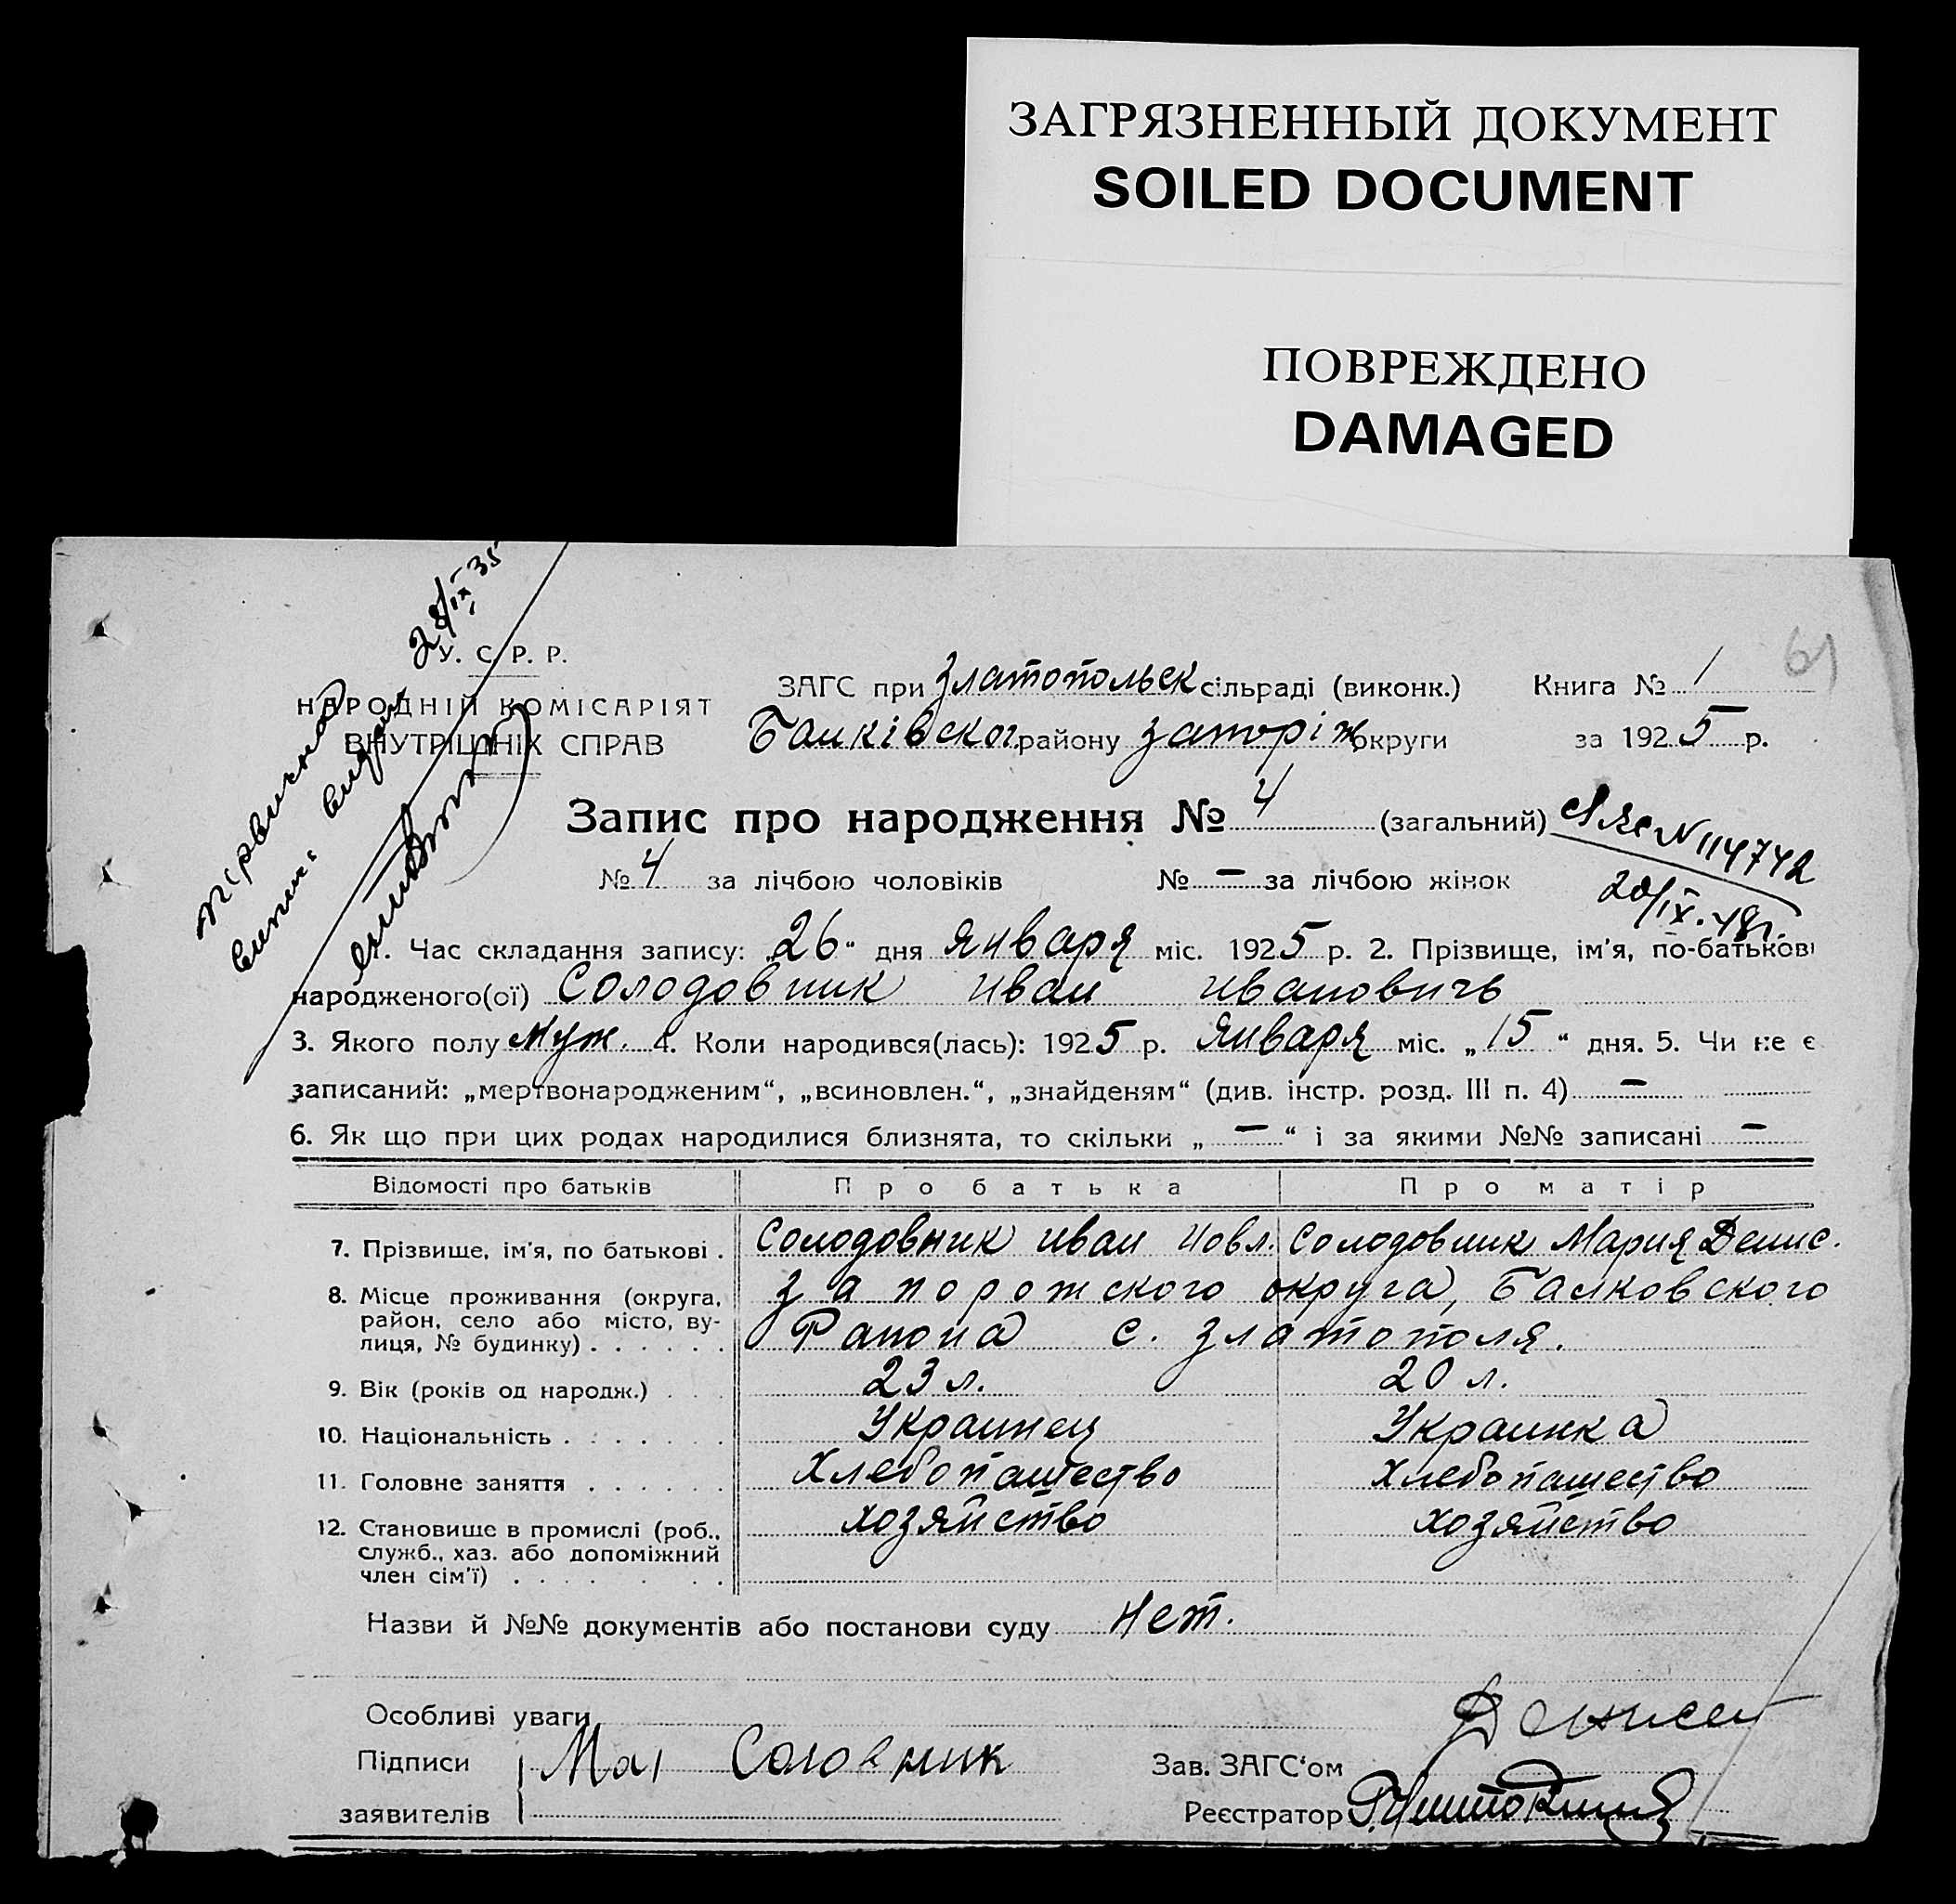 ЗАГРЯЗНЕННЫЙ ДОКУМЕНТ
SOILED DOCUMENT
ПОВРЕЖДЕНО
DAMAGED
28/IX 35
61
У. С. Р. Р.
НАРОДНІЙ КОМІСАРІЯТ
ВНУТРІШНІХ СПРАВ
ЗАГС при Златопольск сільраді (виконк.) Книга № 1
Балківског. району Запоріж округи за 1925 р.
Запис про народження № 4 (загальний)
№ 4 за лічбою чоловіків № — за лічбою жінок
N 114742
20/IX.48г.
1. Час складання запису: „26“ дня Января міс. 1925 р. 2. Прізвище, ім'я, по-батькові
народженого(ої) Солодовник Иван Иванович
3. Якого полу Муж. 4. Коли народився(лась): 1925 р. Января міс. „15“ дня. 5. Чи не є
записаний: „мертвонародженим“, „всиновлен.“, „знайденям“ (див. інстр. розд. III п. 4) —
6. Як що при цих родах народилися близнята, то скільки „—“ і за якими №№ записані —
Відомості про батьків Про батька Про матір
7. Прізвище, ім'я, по батькові . Солодовник Иван Солодовник Мария Денис.
8. Місце проживання (округа, Запорожского округа, Балковского
район, село або місто, ву-
лиця, № будинку) . . . . . . Района с. Златополя.
9. Вік (років од народж.) . . . 23 л. 20 л.
10. Національність . . . . . . . Украинец Украинка
11. Головне заняття . . . . . . Хлебопашество Хлебопашество
12. Становище в промислі (роб., хозяйство хозяйство
служб., хаз. або допоміжний
член сім'ї) . . . . . . .
Назви й №№ документів або постанови суду Нет.
Особливі уваги
Підписи
Зав. ЗАГС'ом
заявителів
Реєстратор